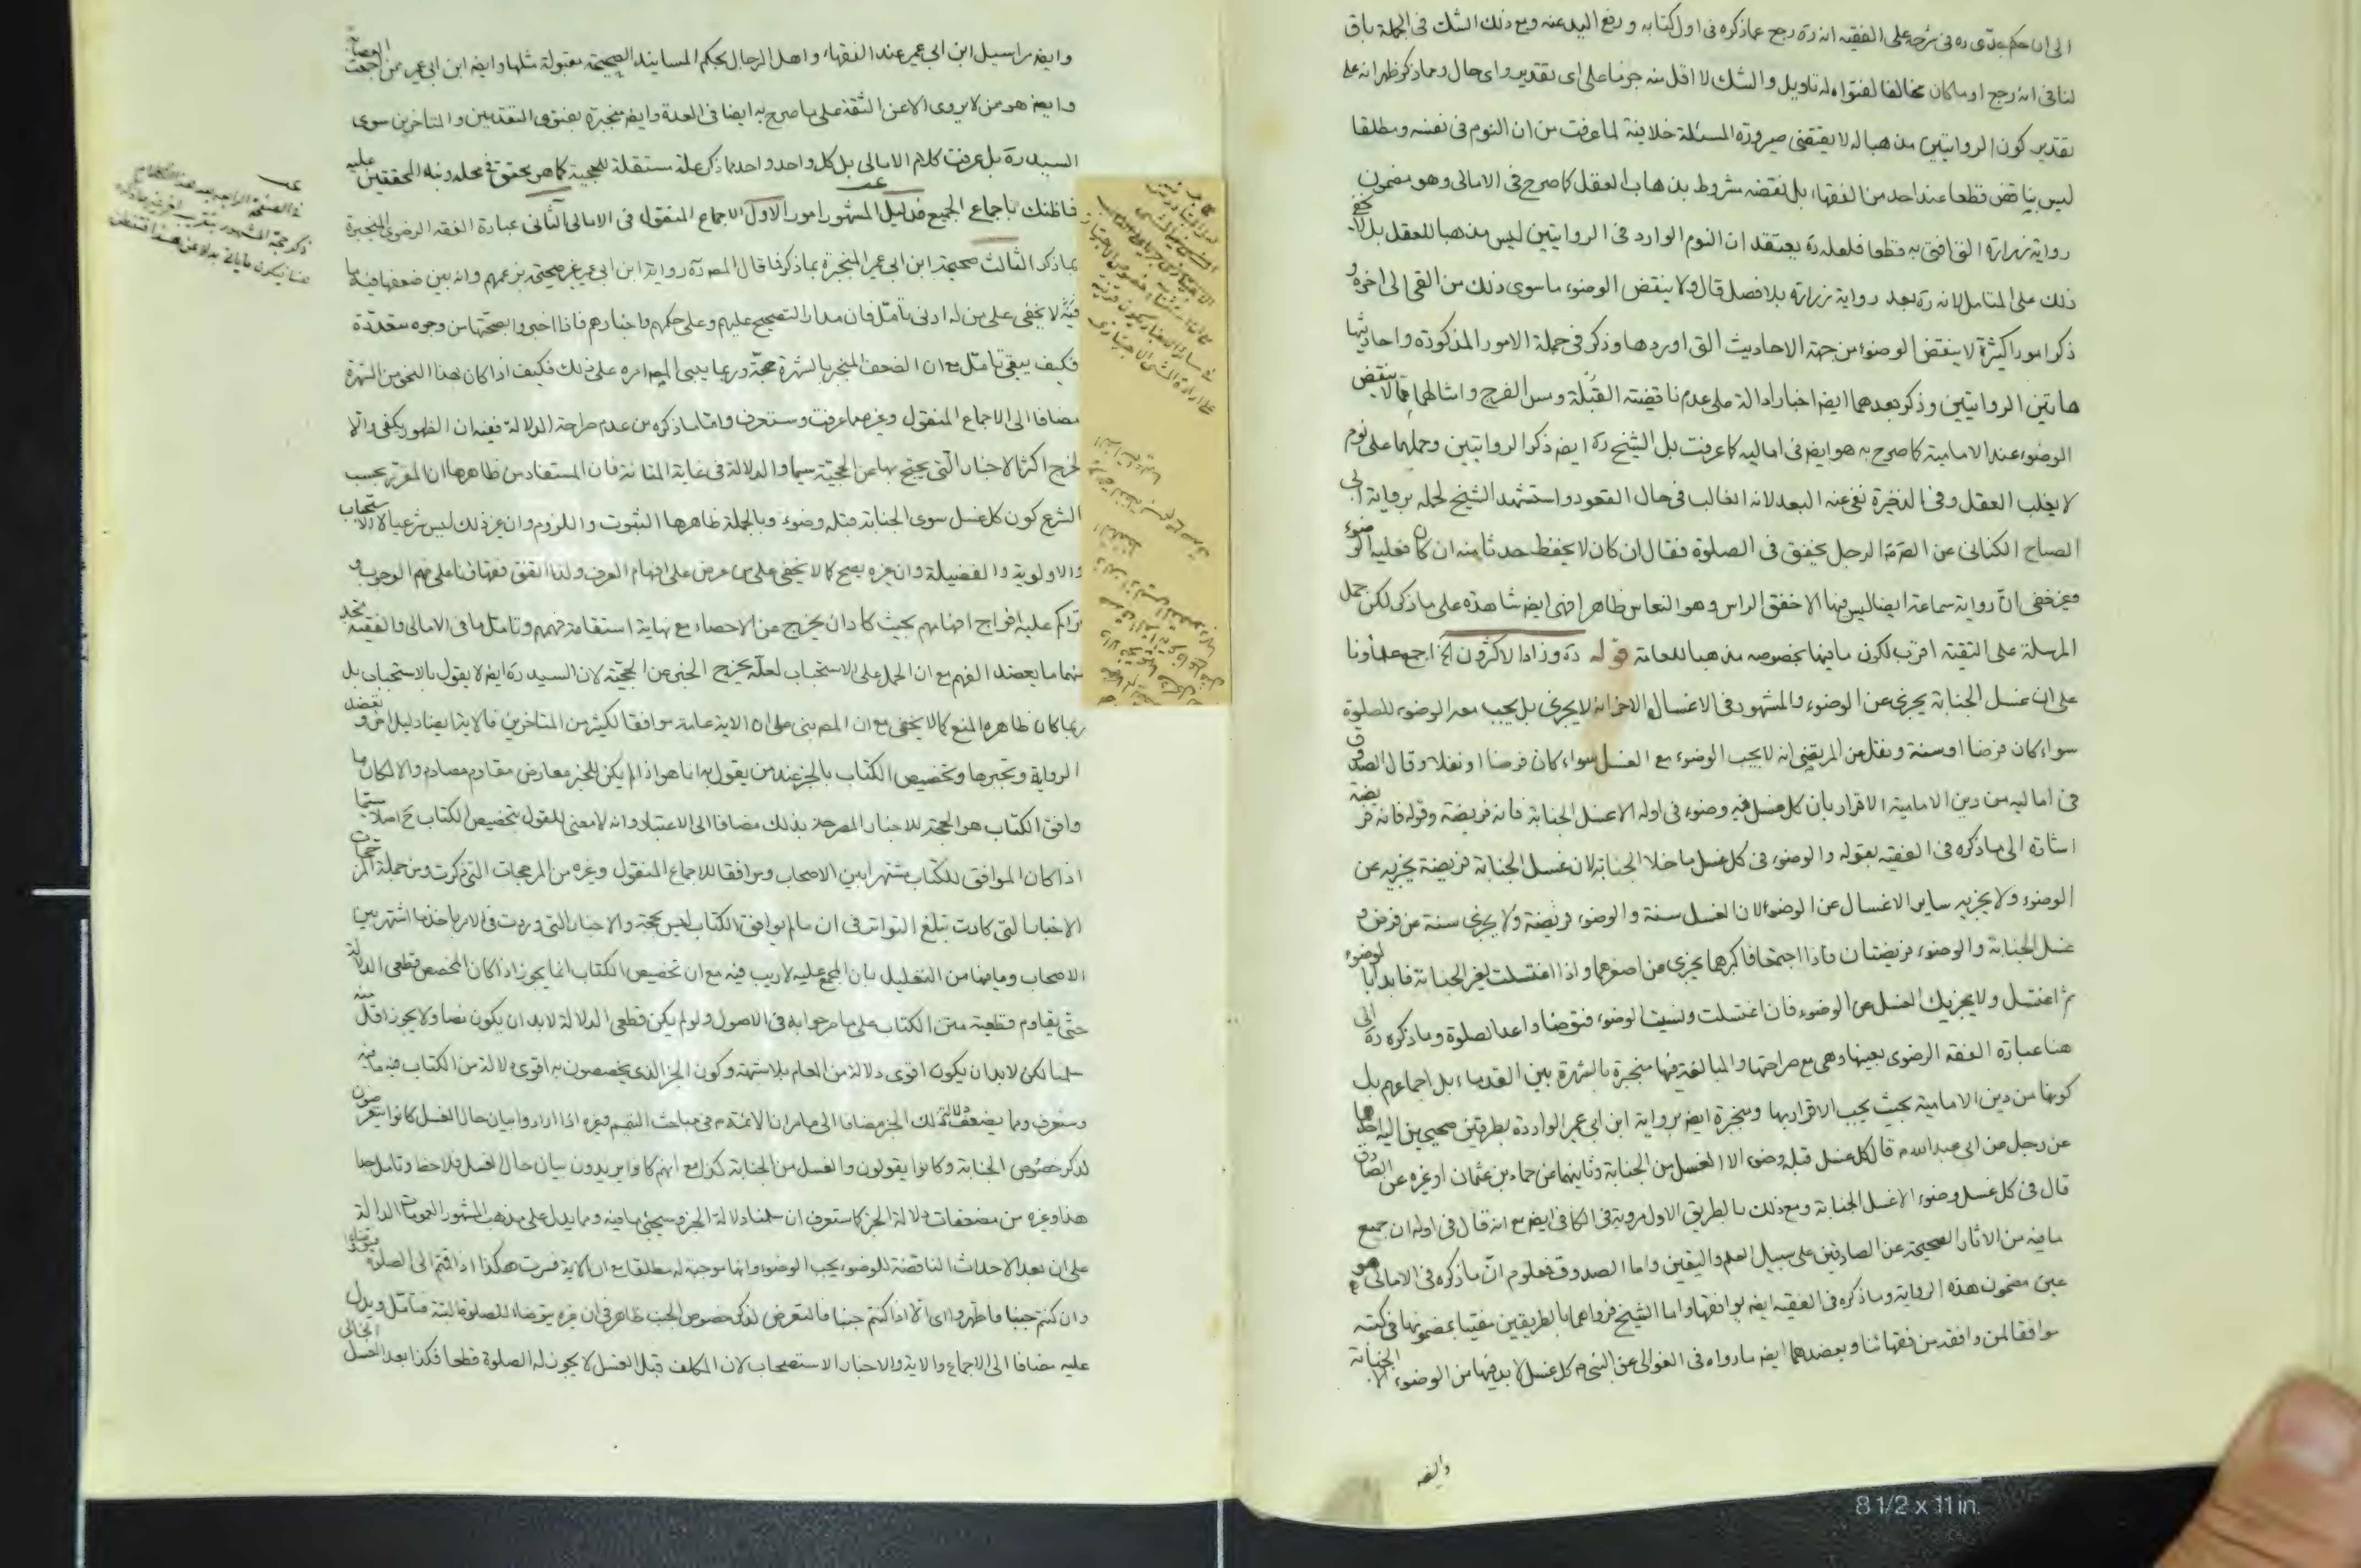 الى ان حكم جدّى ره فى شرحه على الفقيه انه ره رجع عما ذكره فى اول كتابه و رفع اليد عنه ومع ذلك الشك فى الجملة باق
لنا فى انه رجع او ما كان مخالفا لفتواه له تاويل والشك لا اقل منه جزما على اى تقدير واى حال ومما ذكر ظهر انه على
تقدير كون الروايتين مذهبا له لا يقتضى صيرورة المسئلة خلافية لما عرفت من ان النوم فى نفسه ومطلقا
ليس بناقض قطعا عند احد من الفقهاء بل نقضه مشروط بذهاب العقل كما صرح فى الامالى وهو مضمون
رواية زرارة التى افتى به قطعا فلعله ره يعتقد ان النوم الوارد فى الروايتين ليس مذهبا للعقل بل لا يخفى
ذلك على المتامل لانه ره بعد رواية زرارة بلا فصل قال ولا ينقض الوضوء ما سوى ذلك من القى الى اخره و
ذكر امورا كثيرة لا ينقض الوضوء من جهة الاحاديث التى اوردها وذكر فى جملة الامور المذكورة واحاديثها
هاتين الروايتين وذكر بعدهما ايضا اخبارا دالة على عدم ناقضية القُبلة ومس الفرج وامثالهما مما لا ينقض
الوضوء عند الامامية كما صرح به هو ايضا فى اماليه كما عرفت بل الشيخ ره ايضا ذكر الروايتين وحملهما على نوم
لا يغلب العقل وفى الذخيرة نفى عنه البعد لانه الغالب فى حال القعود واستشهد الشيخ لحمله برواية ابى
الصباح الكنانى عن الص الرجل يخفق فى الصلوة فقال ان كان لا يحفظ حدثا منه ان كان فعليه الوضوء
وغير خفى انّ رواية سماعة ايضا ليس فيها الا خفق الراس وهو النعاس ظاهرا فهى ايضا شاهدة على ما ذكر لكن حمل
المرسلة على التقية اقرب لكون ما فيها بخصوصه مذهبا للعامة قوله ره وزاد الاكثرون الخ اجمع علماؤنا
على ان غسل الجنابة يجزى عن الوضوء والمشهور فى الاغسال الاخر انه لا يجزى بل يجب معه الوضوء للصلوة
سواء كان فرضا او سنة ونقل من المرتضى انه لا يجب الوضوء مع الغسل سواء كان فرضا او نفلا وقال الصدوق
فى اماليه من دين الامامية الاقرار بان كل غسل فيه وضوء فى اوله الا غسل الجنابة فانه فريضة وقوله فانه فريضة
اشارة الى ما ذكره فى الفقيه بقوله والوضوء فى كل غسل ما خلا الجنابة لان غسل الجنابة فريضة يجزيه عن
الوضوء ولا يجزيه ساير الاغسال عن الوضوء لان الغسل سنة والوضوء فريضة ولا يجزى سنة عن فرض و
غسل الجنابة والوضوء فريضتان فاذا اجتمعا فاكبرهما يجزى من اصغرهما واذا اغتسلت لغير الجنابة فابدا بالوضوء
ثم اغتسل ولا يجزيك الغسل عن الوضوء فان اغتسلت ونسيت الوضوء فتوضا واعد الصلوة وما ذكره ره الى
هنا عبارة الفقه الرضوى بعينها وهى مع صراحتها والمبالغة فيها منجبرة بالشهرة بين القدماء بل اجماعهم بل
كونها من دين الامامية بحيث يجب الاقرار بها ومنجبرة ايضا برواية ابن ابى عمير الواردة بطرقتين صحيحين اليه احدها
عن رجل من ابى عبدالله ع قال كل غسل قبله وضوء الا الغسل من الجنابة وثانيهما عن حماد بن عثمان او غيره عن الصادق
قال فى كل غسل وضوء الا غسل الجنابة ومع ذلك بالطريق الاول مروية فى الكافى ايضا مع انه قال فى اوله ان جميع
ما فيه من الاثار الصحيحة عن الصادقين على سبيل العلم واليقين واما الصدوق فمعلوم انّ ما ذكره فى الامالى هو
عين مضمون هذه الرواية وما ذكره فى الفقيه ايضا يوافقها واما الشيخ فرواهما بالطريقين مفتيا بمضمونها فى كتبه
موافقا لمن وافقه من فقهائنا ويعضدهما ايضا ما رواه فى الغوالى عن النبى ص كل غسل لا بد فيها من الوضوء الا الجنابة
وايضه
وايضه مراسيل ابن ابى عمير عند الفقهاء واهل الرجال بحكم المسانيد الصحيحة مقبولة مثلها وايضه ابن ابى عمير ممن اجمعت العصابة
وايضه هو ممن لا يروى الا عن الثقة على ما صرح به ايضا فى العدة وايضه منجبرة بفتوى المتقدمين والمتاخرين سوى
السيد ره بل عرفت كلام الامالى بل كل واحد واحد مما ذكر علة مستقلة للحجية كما هو محقق فى محله ونبه المحققين عليه
فما ظنك باجماع الجميع فدليل المشهور امور الاول الاجماع المنقول فى الامالى الثانى عبارة الفقه الرضوى المنجبرة
بما ذكر الثالث صحيحة ابن ابى عمير المنجبرة بما ذكر فما قال المص ره رواية ابن ابى عمير غير صحيحة بزعمهم وانه بين ضعفها فيه ما
فيه لا يخفى على من له ادنى تامّل فان مدار التصحيح عليهم وعلى حكمهم واخبارهم فاذا اخبروا بصحتها من وجوه متعددة
فكيف يبقى تامّل مع ان الضعف المنجبر بالشهرة حجة وربما يبنى المص امره على ذلك فكيف اذا كان بهذا النحو من الشهرة
مضافا الى الاجماع المنقول وغيره مما عرفت وستعرف واما ما ذكره من عدم صراحة الدلالة ففيه ان الظهور يكفى والا
لخرج اكثر الاخبار التى يحتج بها عن الحجية سيما والدلالة فى غاية المتانة فان المستفاد من ظاهرها ان المقرر بحسب
الشرع كون كل غسل سوى الجنابة قبله وضوء وبالجملة ظاهرها الثبوت واللزوم وان غير ذلك ليس شرعيا لا الاستحباب
والاولوية والفضيلة وان غيره يصح كما لا يخفى على من عرض على افهام العرف ولذا اتفق فقهاؤنا على فهم الوجوب و
تراكم عليه افواج افهامهم بحيث كاد ان يخرج عن الاحصاء مع نهاية استقامة فهمهم وتامل ما فى الامالى والفقيه تجد
منهما ما يعضد الفهم مع ان الحمل على الاستحباب لعله يخرج الخبر عن الحجيّة لان السيد ره ايضا لا يقول بالاستحباب بل
ربما كان ظاهره المنع كما لا يخفى مع ان المص بنى على ان الاية عامة موافقا لكثير من المتاخرين فالاية ايضا دليل اخر و تعضد
الرواية وتجبرها وتخصيص الكتاب بالخبر عند من يقول به انما هو اذا لم يكن للخبر معارض مقاوم مصادم والا لكان ما
وافق الكتاب هو الحجة للاخبار المصرحة بذلك مضافا الى الاعتبار وانه لا معنى للقول بتخصيص الكتاب ح اصلا سيما
اذا كان الموافق للكتاب مشتهرا بين الاصحاب وموافقا للاجماع المنقول وغيره من المرجحات التى ذكرت ومن جملة المرجحات
الاخبار التى كادت تبلغ التواتر فى ان ما لم يوافق الكتاب ليس بحجة والاخبار التى وردت فى الامر باخذ ما اشتهر بين
الاصحاب وما فيها من التعليل بان المجمع عليه لا ريب فيه مع ان تخصيص الكتاب انما يجوز اذا كان المخصص قطعى الدلالة
حتّى يقاوم قطعية متن الكتاب على ما صرحوا به فى الاصول ولو لم يكن قطعى الدلالة لا بد ان يكون نصا ولا يجوز اقل منه
سلمنا لكن لا بد ان يكون اقوى دلالة من العام بلا شبهة وكون الخبر الذى يخصصون به اقوى دلالة من الكتاب فيه ما فيه
وستعرف ومما يضعف دلالة ذلك الخبر مضافا الى ما مر ان الائمة ع فى مباحث التيمم وغيره اذا ارادوا بيان حال الغسل كانوا يتعرضون
لذكر خصوص الجنابة وكانوا يقولون والغسل من الجنابة كذا مع انهم كانوا يريدون بيان حال الغسل فلاحظ وتامل جدا
هذا وغيره من مضعفات دلالة الخبر كما ستعرف ان سلمنا دلالة الخبر وسيجئ ما فيه ومما يدل على مذهب المشهور العمومات الدالة
على ان بعد الاحداث الناقضة للوضوء يجب الوضوء وانها موجبة له مطلقا مع ان الاية فسرت هكذا اذا قمتم الى الصلوة فتوضؤا
وان كنتم جنبا فاطهروا اى الا اذا كنتم جنبا فالتعرض لذكر خصوص الجنب ظاهر فى ان غيره يتوضاء للصلوة البتة فتامّل ويدل
عليه مضافا الى الاجماع والاية والاخبار الاستصحاب لان المكلف قبل الغسل لا يجوز له الصلوة قطعا فكذا بعد الغسل الخالى